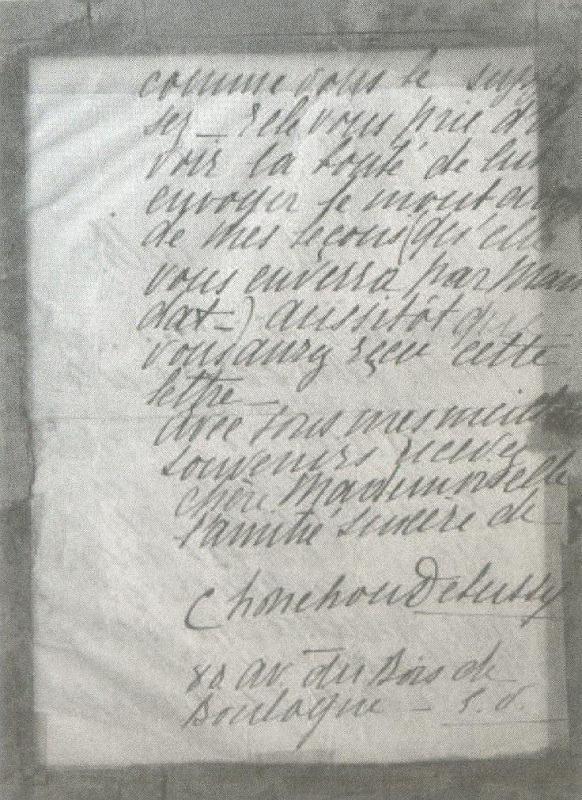 comme vous le suppo
sez _ Elle vous prie d'a
voir la bonté de lui
envoyer le montant
de mes leçons (qu'elle
vous enverra par man
dat _) aussitôt que
vous aurez reçu cette
lettre _
Avec tous mes meilleurs
souvenirs recevez
chère Mademoiselle
l'amitié sincère de
Chouchou Debussy
80 av du Bois de
Boulogne _